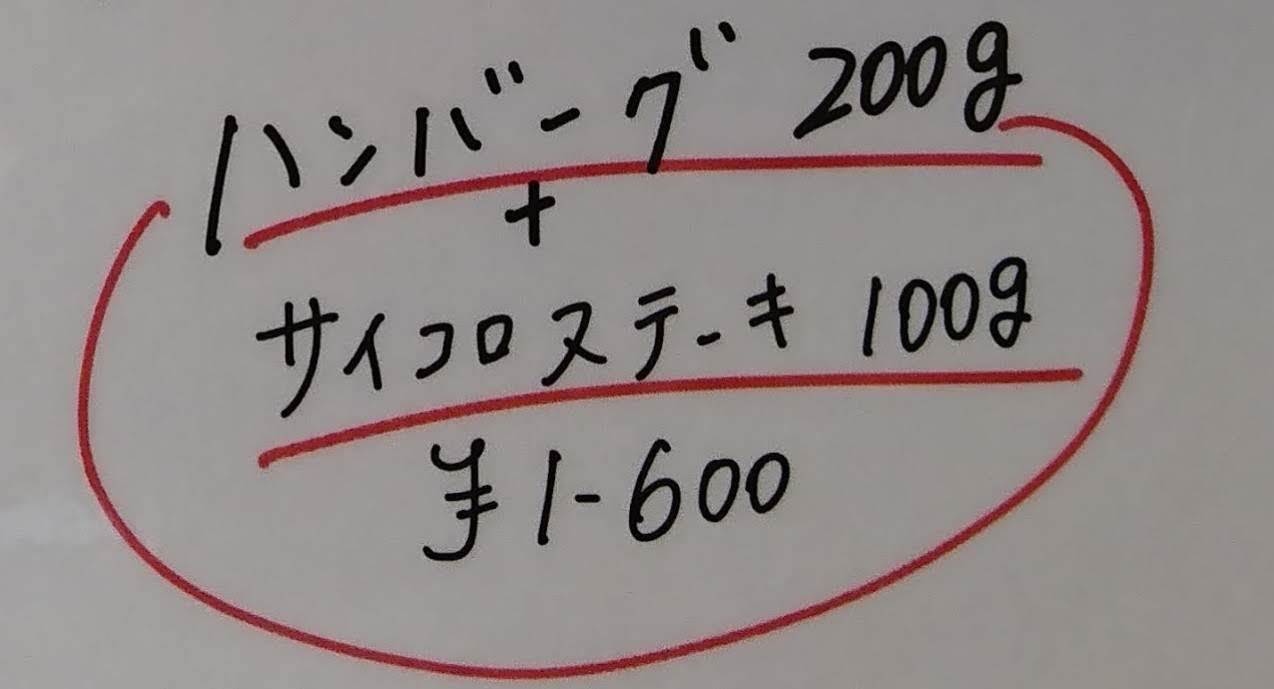 ハンバーグ 200g
+
サイコロステーキ 100g
¥1-600